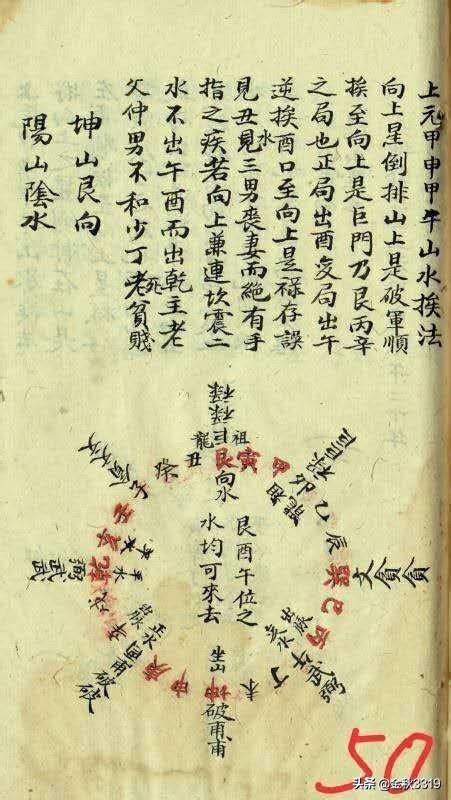 上元甲申甲午山水挨法
向上星倒排山上是破軍順
挨至向上是巨門乃艮丙辛
之局也正局出酉変局出午
逆挨酉口至向上是祿存誤
見丑見水三男喪妻而絕有手
指之疾若向上兼連坎震二
水不出午酉而出乾主老
父仲男不和少丁老死貧賤
坤山艮向
陽山陰水
祖
龍
丑艮寅甲
向水
卯乙辰
巽巳丙
丁
未
坤
申庚
乾亥壬
子
癸
艮酉午位之
水均可來去
坐山
破甫甫
文貪貪
武弼
弼武武
50
头条 @金秋3319